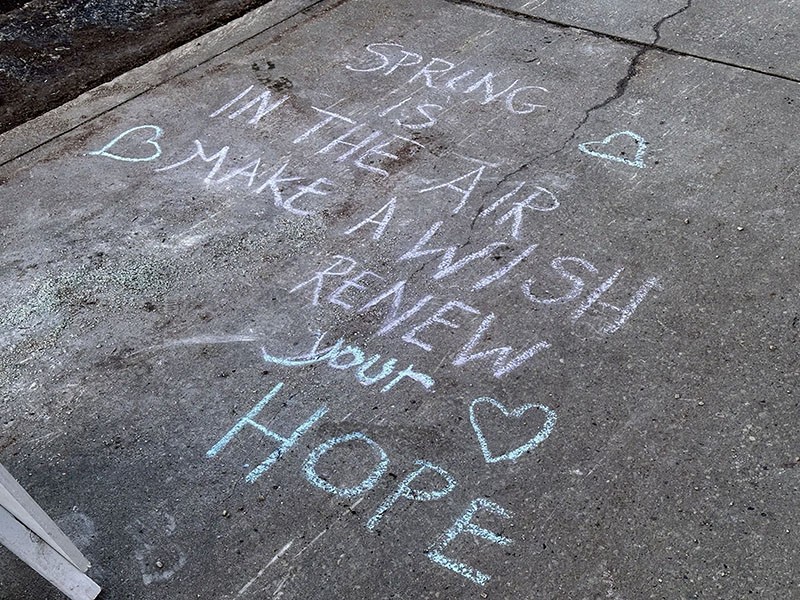 SPRING
IS
IN THE AIR
MAKE A WISH
RENEW
your
HOPE